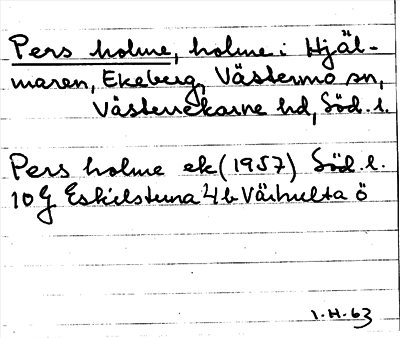 Pers holme, holme i Hjäl-
maren, Ekeberg, Västermo sn,
Västerrekarne hd, Söd. l.
Pers holme ek (1957) Söd. l.
10G Eskilstuna 4b Väihulta ö
1.H.63